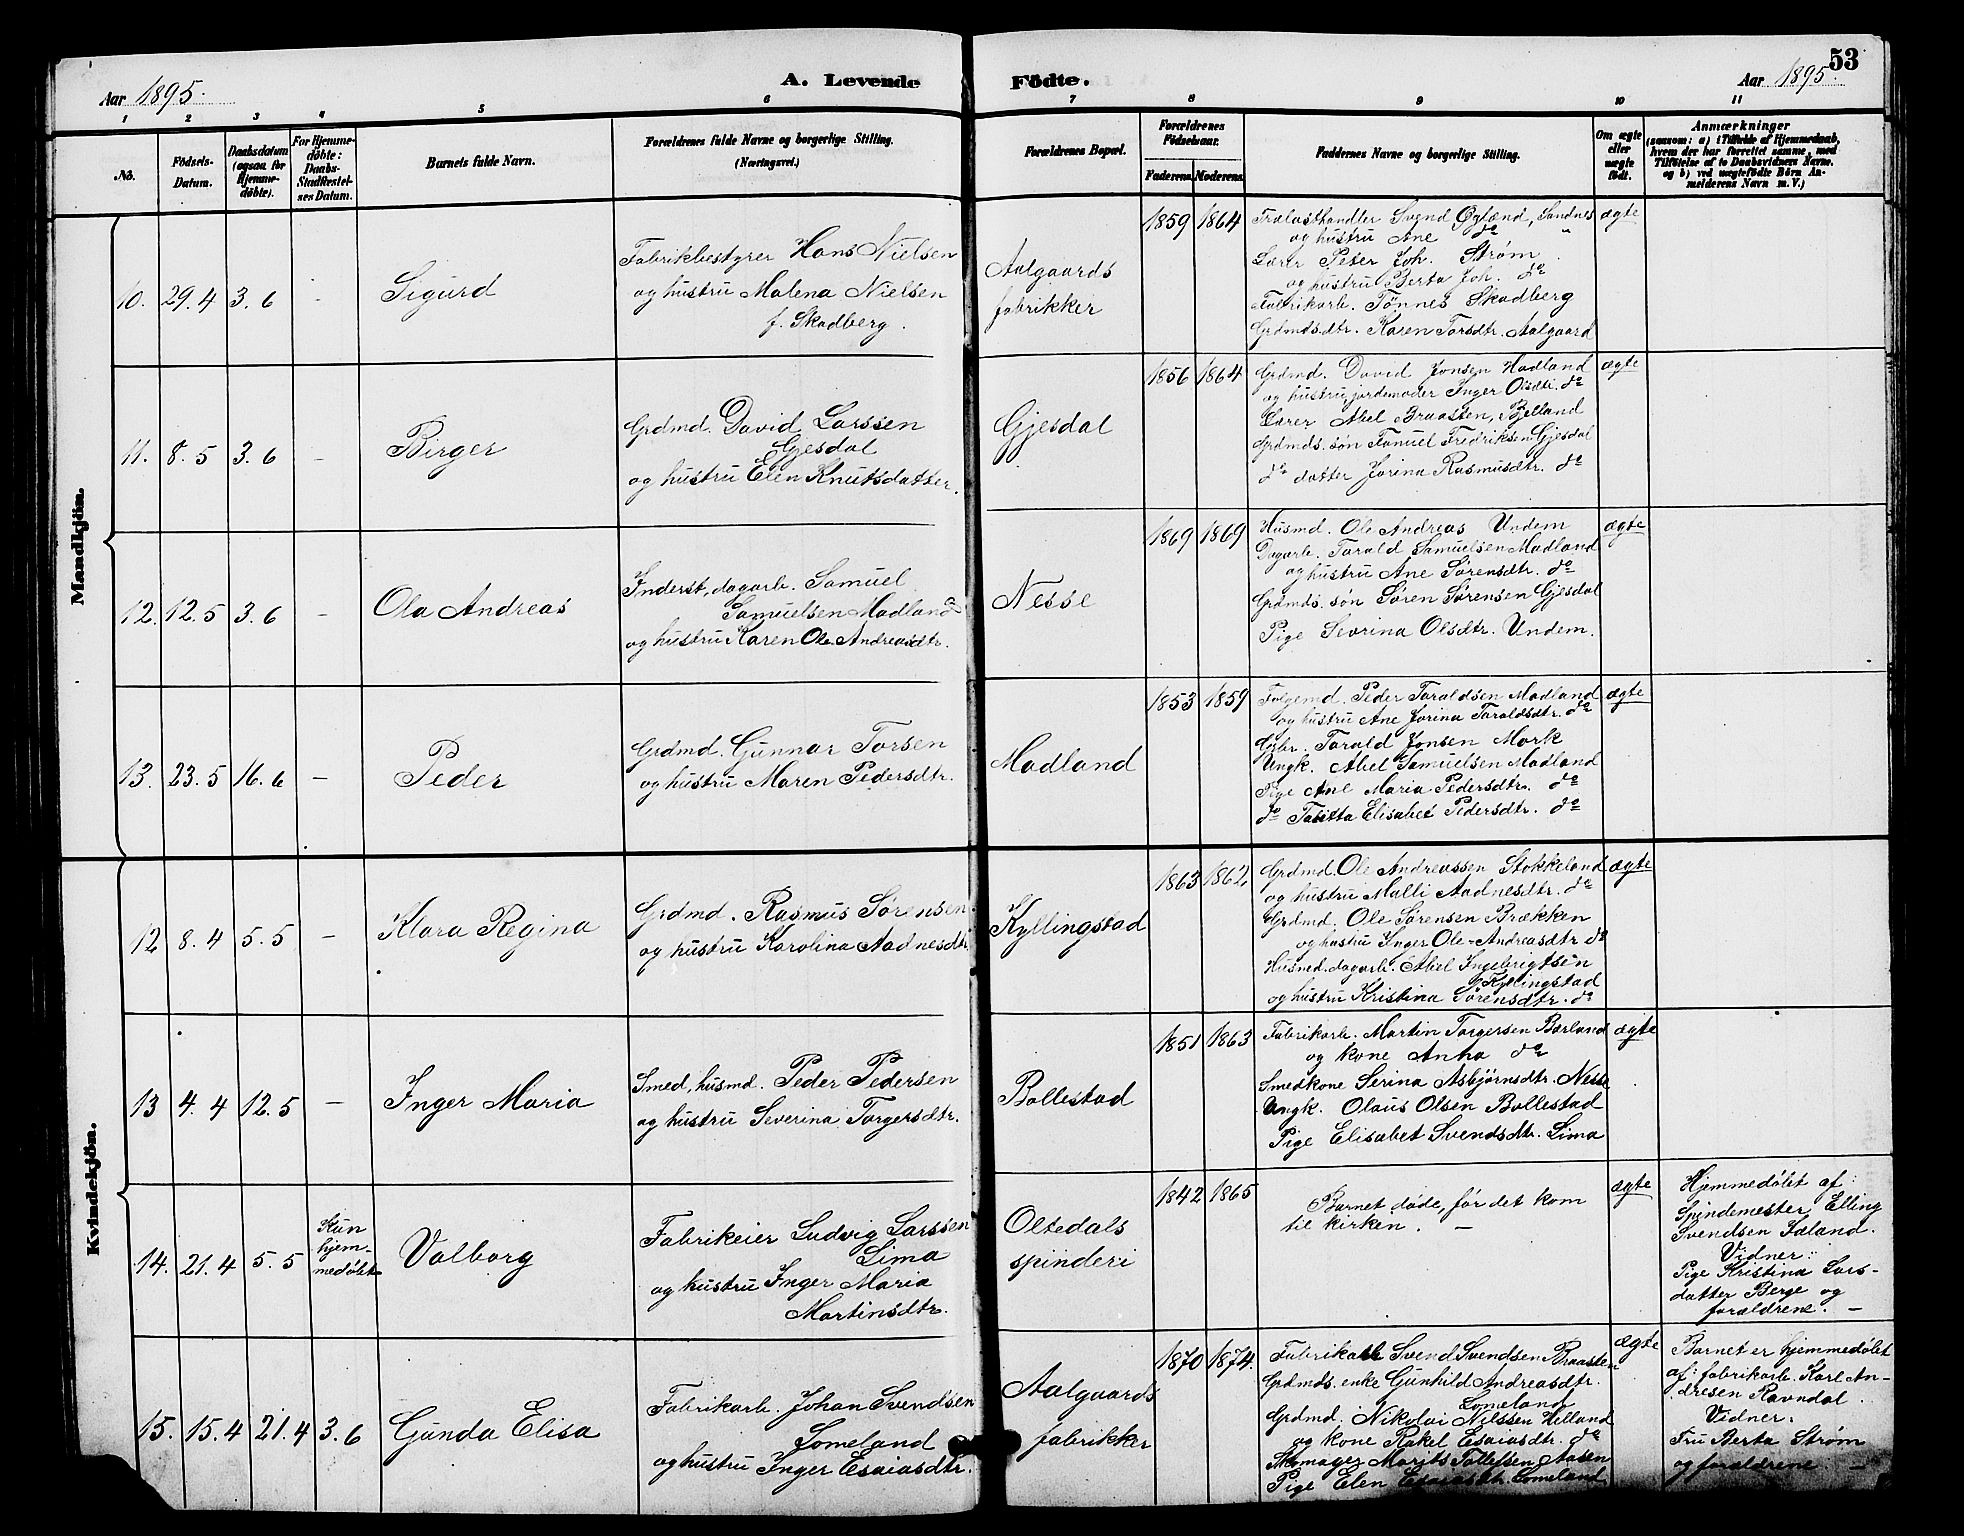 53
Aar 1895.
A. Levende
Födte.
Aar 1895.
1 2 3 4 5 6 7 8 9 10 11
No.
Födsels-
Datum.
Daabsdatum
(ogsaa for
Hjemme-
døbte).
For Hjemme-
døbte:
Daabs-
Stadfæstel-
ses Datum.
Barnets fulde Navn.
Forældrenes fulde Navne og borgerlige Stilling.
(Næringsvei.)
Forældrenes Bopæl.
Forældrenes
Födselsaar.
Faderens. Moderens.
Faddernes Navne og borgerlige Stilling.
Om ægte
eller
uægte
født.
Anmærkninger
(saasom: a) i Tilfælde af Hjemmedaab,
hvem der har forrettet samme, med
Tilföielse af to Daabsvidners Navne.
og b) ved uægtefödte Börn An-
melderens Navn m. V.)
Mandkjön.
10. 29.4 3.6 -
Sigurd
Fabrikbestyrer Hans Nielsen
og hustru Malena Nielsen
f. Skadberg.
Aalgaards
fabrikker
1859 1864
Trælasthandler Svend Øglænd, Sandnes
og hustru Ane do "
Lærer Peter Joh. Strøm
og hustru Berta Joh. do
Fabrikarb. Tønnes Skadberg
Grdmds.dtr. Karen Torsdtr. Aalgaard
ægte
11. 8.5 3.6 -
Birger
Grdmd. David Larssen
Gjesdal
og hustru Elen Knutsdatter.
Gjesdal
1856 1864
Grdmd. David Jonsen Madland
og hustru, jordemoder Inger Olsdtr. do
Lærer Abel Braasten, Bjelland
Grdmds. søn Tanuel Fredriksen Gjesdal
do datter Jorina Rasmusdtr. do
ægte
12. 12.5 3.6 -
Ola Andreas
Inderst, dagarb. Samuel
Samuelsen Madland
og hustru Karen Ole Andreasdtr.
Nesse
1869 1869
Husmd. Ole Andreas Undem
Dagarb. Tarald Samuelsen Madland
og hustru Ane Sørensdtr. do
Grdmds. søn Søren Sørensen Gjesdal
Pige Sevrina Olsdtr. Undem.
ægte
13. 23.5 16.6 -
Peder
Grdmd. Gunnar Torsen
og hustru Maren Pedersdtr.
Madland
1853 1859
Folgemd. Peder Taraldsen Madland
og hustru Ane Jorina Taraldsdtr. do
Gbr. Tarald Jonsen Mork
Ungk. Abel Samuelsen Madland
Pige Ane Maria Pedersdtr. do
do Tabitta Elisabet Pedersdtr. do
ægte
Kvindekjön.
12 8.4 5.5 -
Klara Regina
Grdmd. Rasmus Sørensen
og hustru Karolina Aadnesdtr.
Kyllingstad
1863 1862
Grdmd. Ole Andreassen Stokkeland
og hustru Malli Aadnesdtr. do
Grdmd. Ole Sørensen Brækken
og hustru Inger Ole-Andreasdtr do
Husmd. dagarb. Abel Ingebrigtsen
Kyllingstad
og hustru Kristina Sørensdtr. do
ægte
13 4.4 12.5 -
Inger Maria
Smed, husmd. Peder Pedersen
og hustru Severina Torgersdtr.
Bollestad
1851 1863
Fabrikarb. Martin Torgersen Børland
og kone Anna do
Smedkone Serina Asbjørnsdtr. Nesse
Ungk. Olaus Olsen Bollestad
Pige Elisabet Svendsdtr. Lima
ægte
14. 21.4 5.5
Kun
hjem-
medøbt
Valborg
Fabrikeier Ludvig Larssen
Lima
og hustru Inger Maria
Martinsdtr.
Oltedals
spinderi
1842 1865
Barnet døde, før det kom
til kirken. -
ægte
Hjemmedøbt af:
Spindemester Elling
Svendsen Faland.
Vidner:
Pige Kristina Lars-
datter Berge og
forældrene. -
15. 15.4 21.4 3.6
Gunda Elisa
Fabrikarb. Johan Svendsen
Lomeland
og hustru Inger Esaiasdtr.
Aalgaards
fabrikker
1870 1874.
Fabrikarb Svend Svendsen Braasten
Grdmds. enke Gunhild Andreasdtr.
Lomeland
Grdmd. Nikolai Nilssen Helland
og kone Rakel Esaiasdtr. do
Skomager Marits Tollefsen Aasen
Pige Elen Esaiasdtr. Lomeland
ægte
Barnet er hjemmedøbt
af: fabrikarb. Karl An-
dresen Ravndal.
Vidner:
Fru Berta Strøm
og forældrene. -